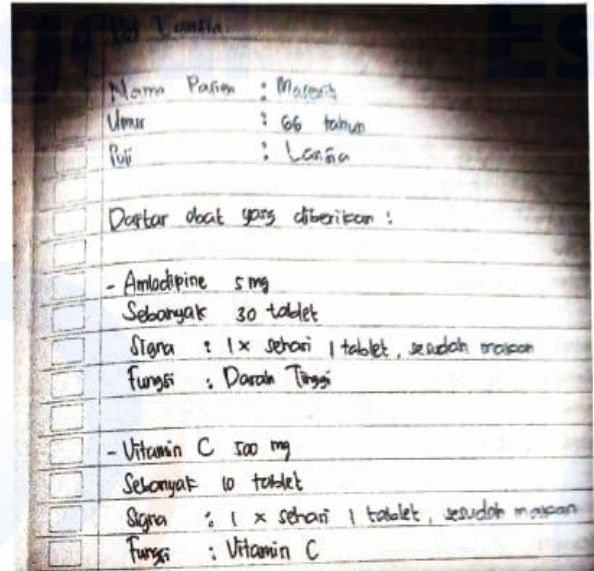 Poli Lansia
Nama Pasien :
Umur : 66 tahun
Poli : Lansia
Daftar obat yang diberikan :
- Amlodipine 5 mg
Sebanyak 30 tablet
Signa : 1 x sehari 1 tablet, sesudah makan
Fungsi : Darah Tinggi
- Vitamin C 500 mg
Sebanyak 10 tablet
Signa : 1 x sehari 1 tablet, sesudah makan
Fungsi : Vitamin C